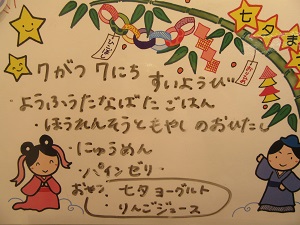 七夕ま
7がつ 7にち すいようび
ようふうたなばたごはん
・ほうれんそうともやしのおひたし
・にゅうめん
・パインゼリー
おやつ ・七夕ヨーグルト
・りんごジュース